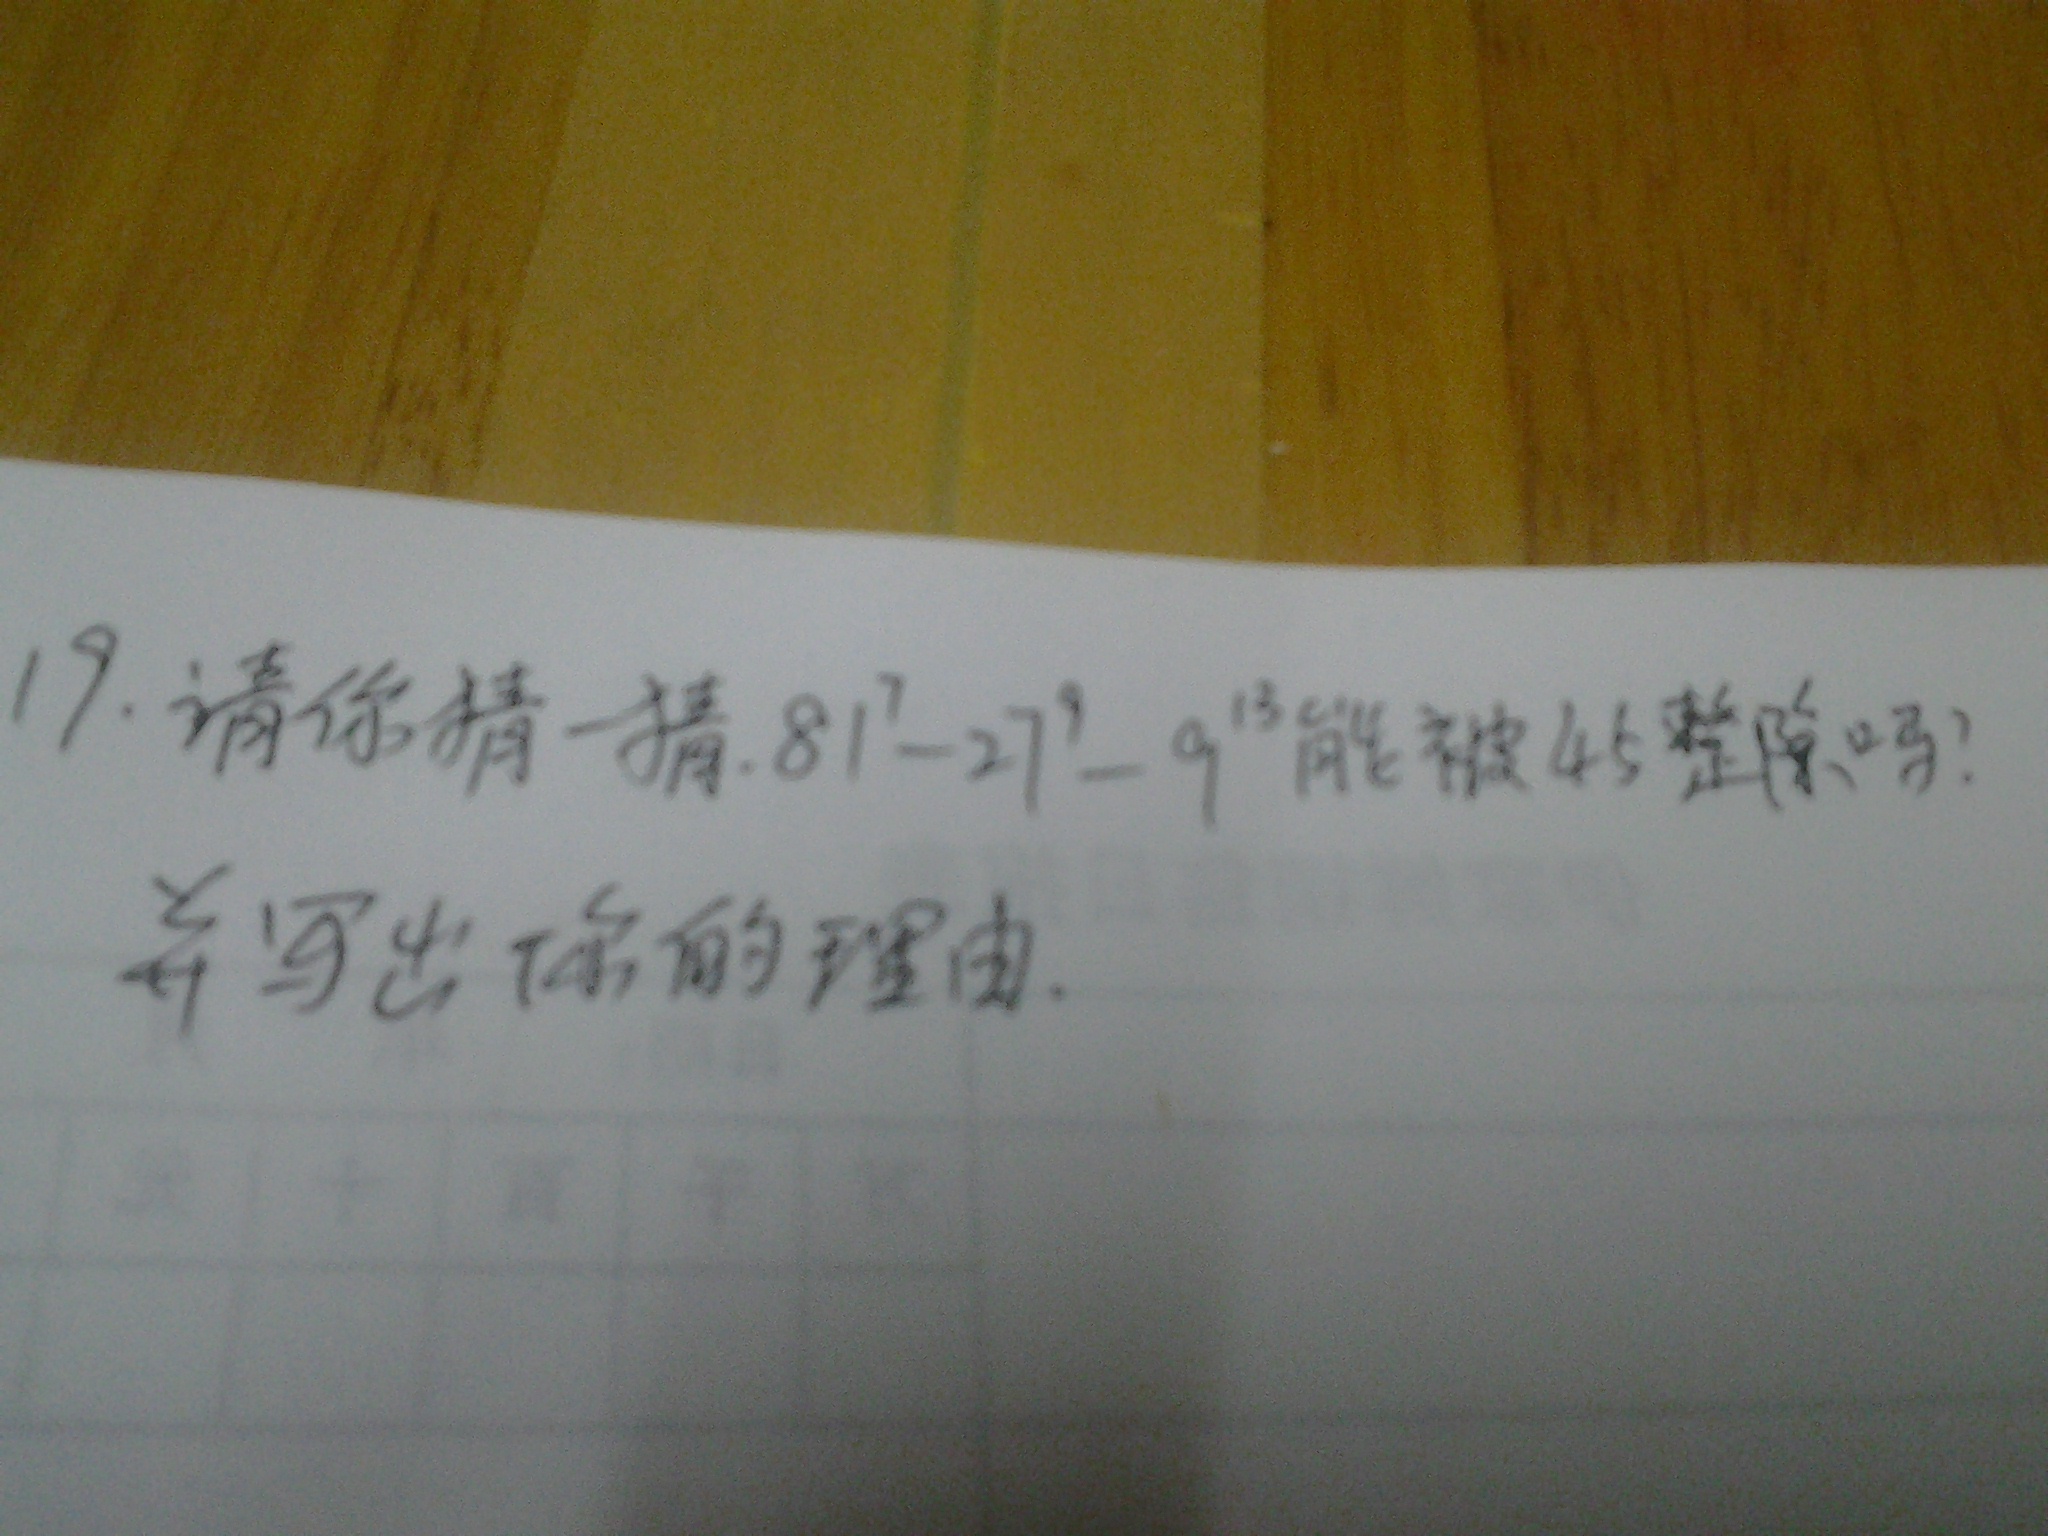 19. 请你猜一猜.81⁷-27⁹-9¹³能被45整除吗?
并写出你的理由.